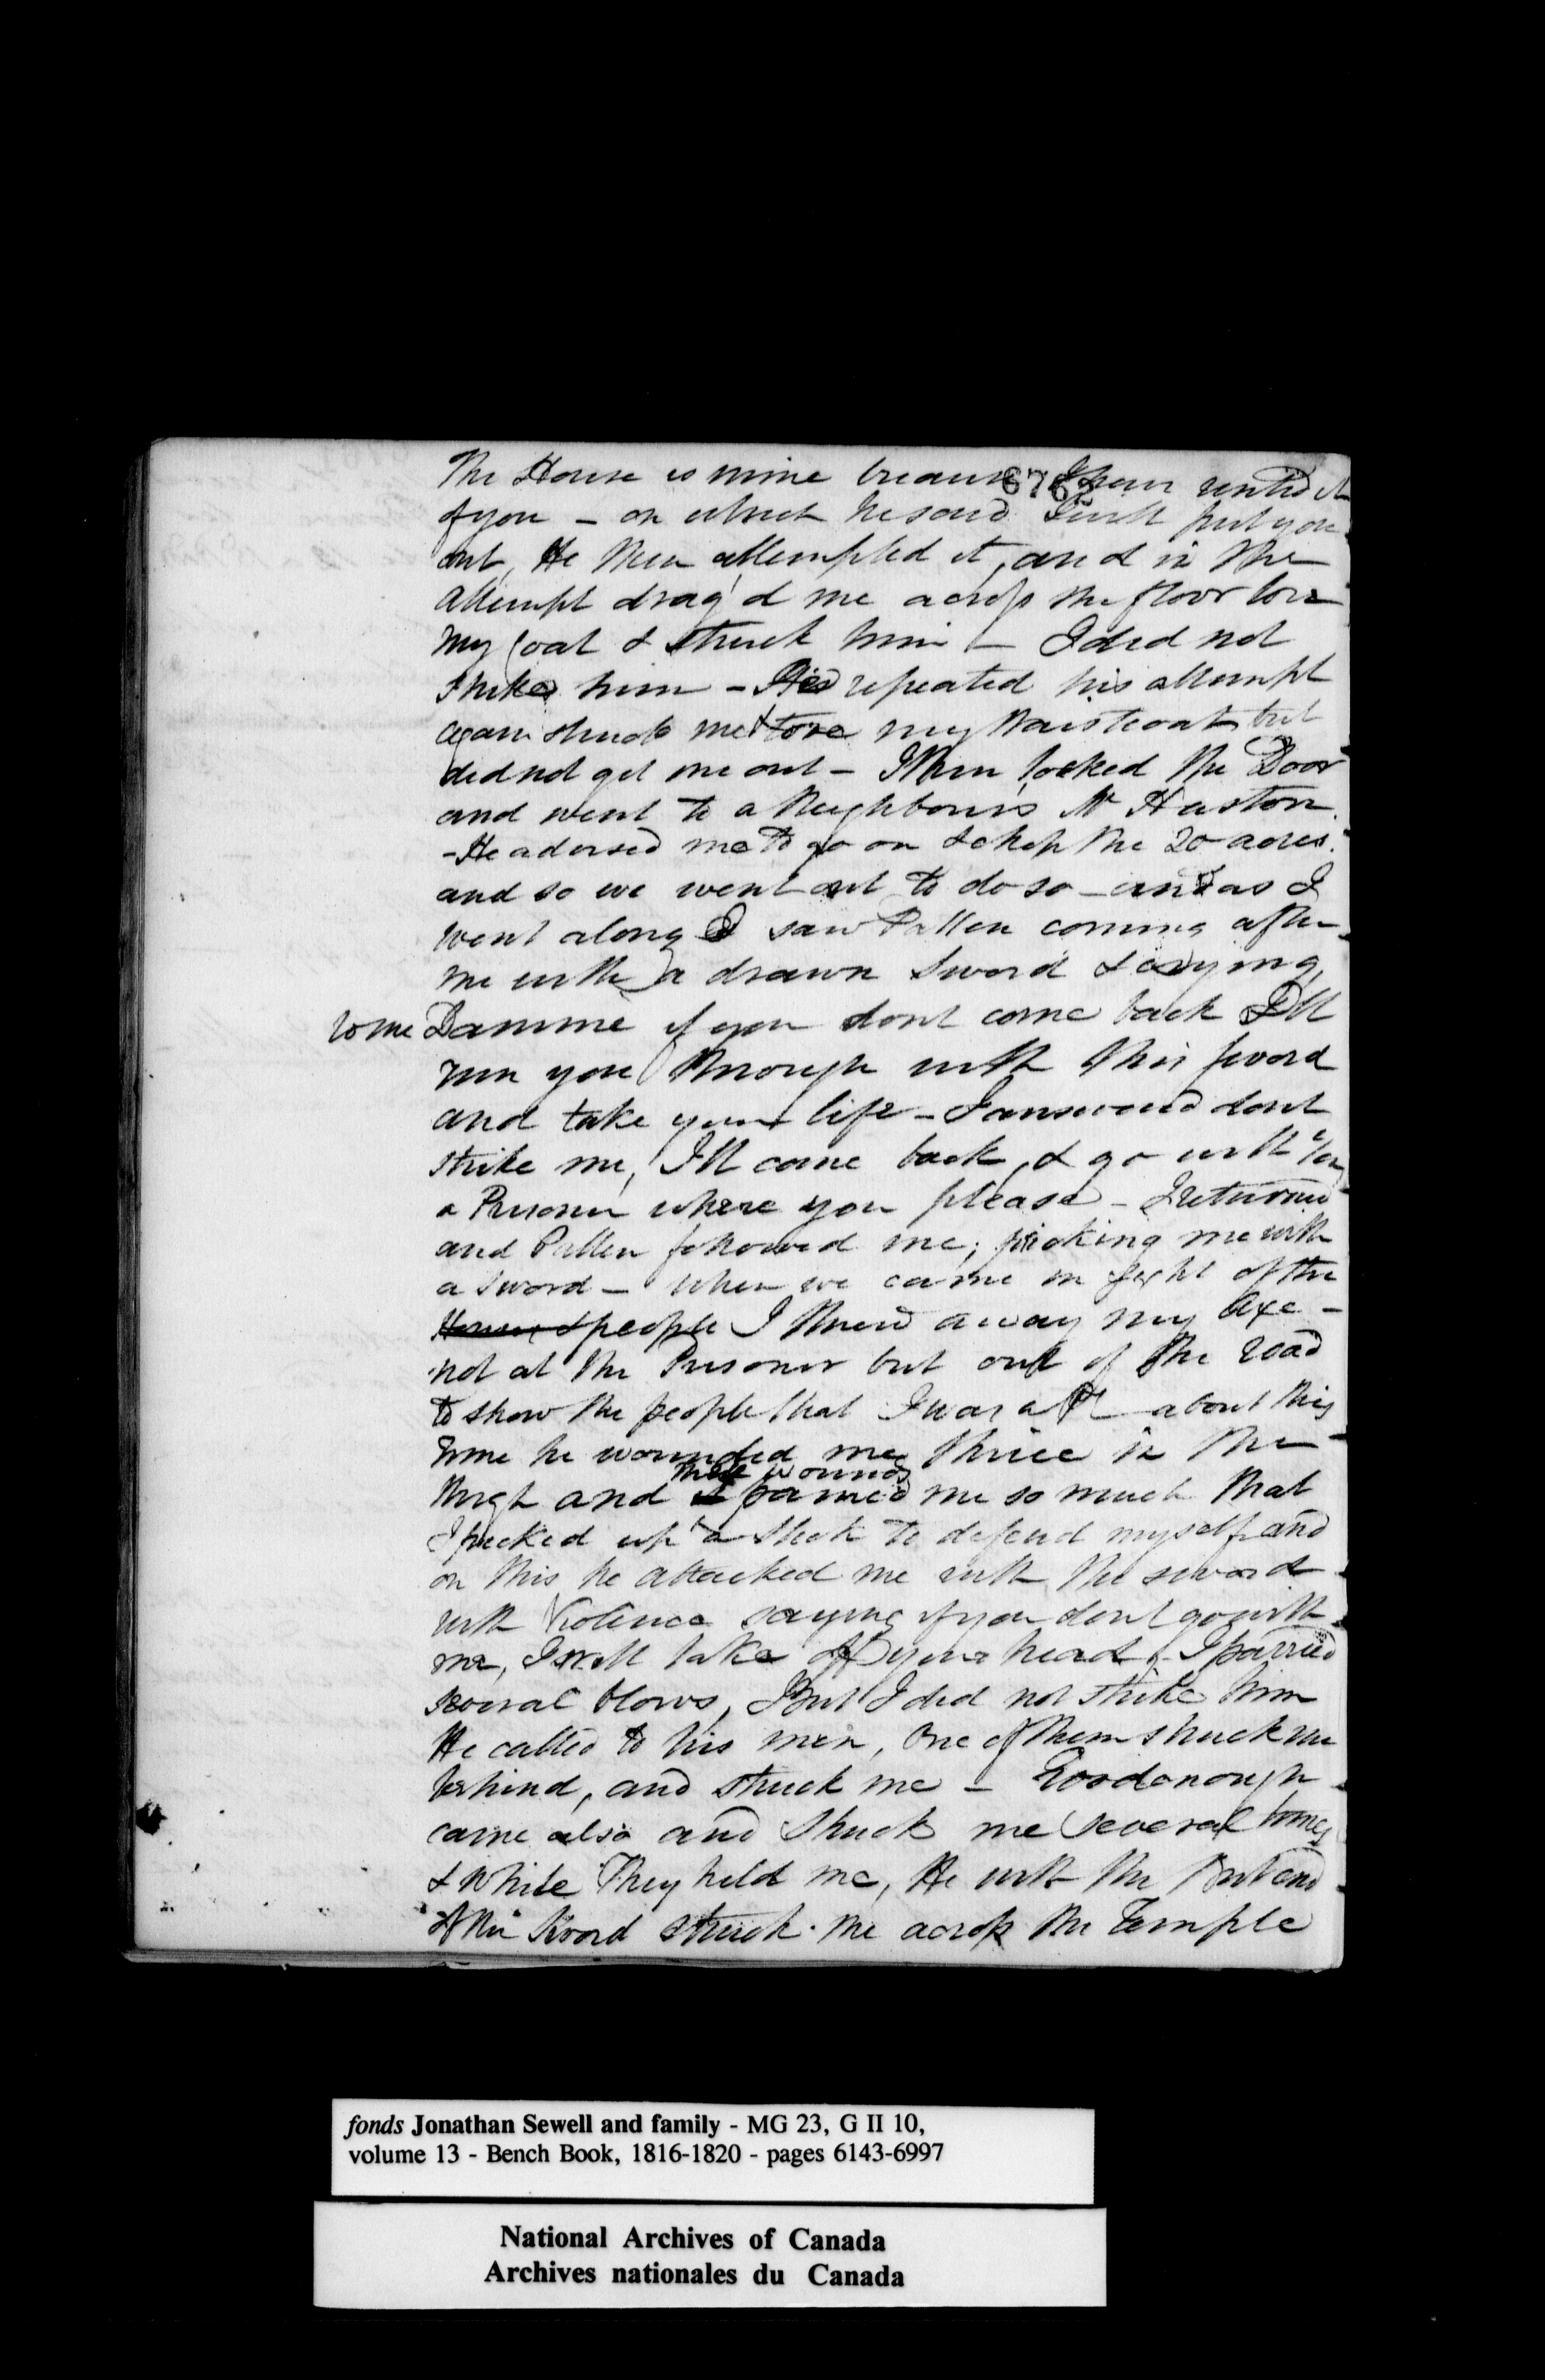 6762
The House is mine because I have rented it
of you – on which he said I will put you
out, He then attempted it, and in the
attempt drag'd me across the floor tore
my Coat & struck him – I did not
strike him – He repeated his attempt
again struck me & tore my Waistcoat but
did not get me out – I then locked the Door
and went to a Neighbours Mr Huston
– He advised me to go on & chop the 20 acres.
and so we went out to do so – and as I
went along I saw Pallen coming after
me with a drawn Sword & saying
to me Damme if you dont come back I'll
run you through with this sword
and take your life – I answered dont
strike me, I'll come back, & go with you
a Prisoner where you please – I returned
and Pallen followed me, pricking me with
a sword – when we came in sight of the
people I threw away my Axe –
not at the Prisoner but out of the road
to show the people that I was a Pr – about this
time he wounded me thrice in the
thigh and these wounds pained me so much that
I picked up a Stick to defend myself and
on this he attacked me with the sword
with Violence saying if you dont go with
me, I will take off your head. I parried
several blows, But I did not strike him
He called to his men, One of them struck me
behind, and struck me – Goodenough
came also and Struck me several times
& While They held me, He with the But end
of the Sword struck me across the Temple
fonds Jonathan Sewell and family - MG 23, G II 10,
volume 13 - Bench Book, 1816-1820 - pages 6143-6997
National Archives of Canada
Archives nationales du Canada